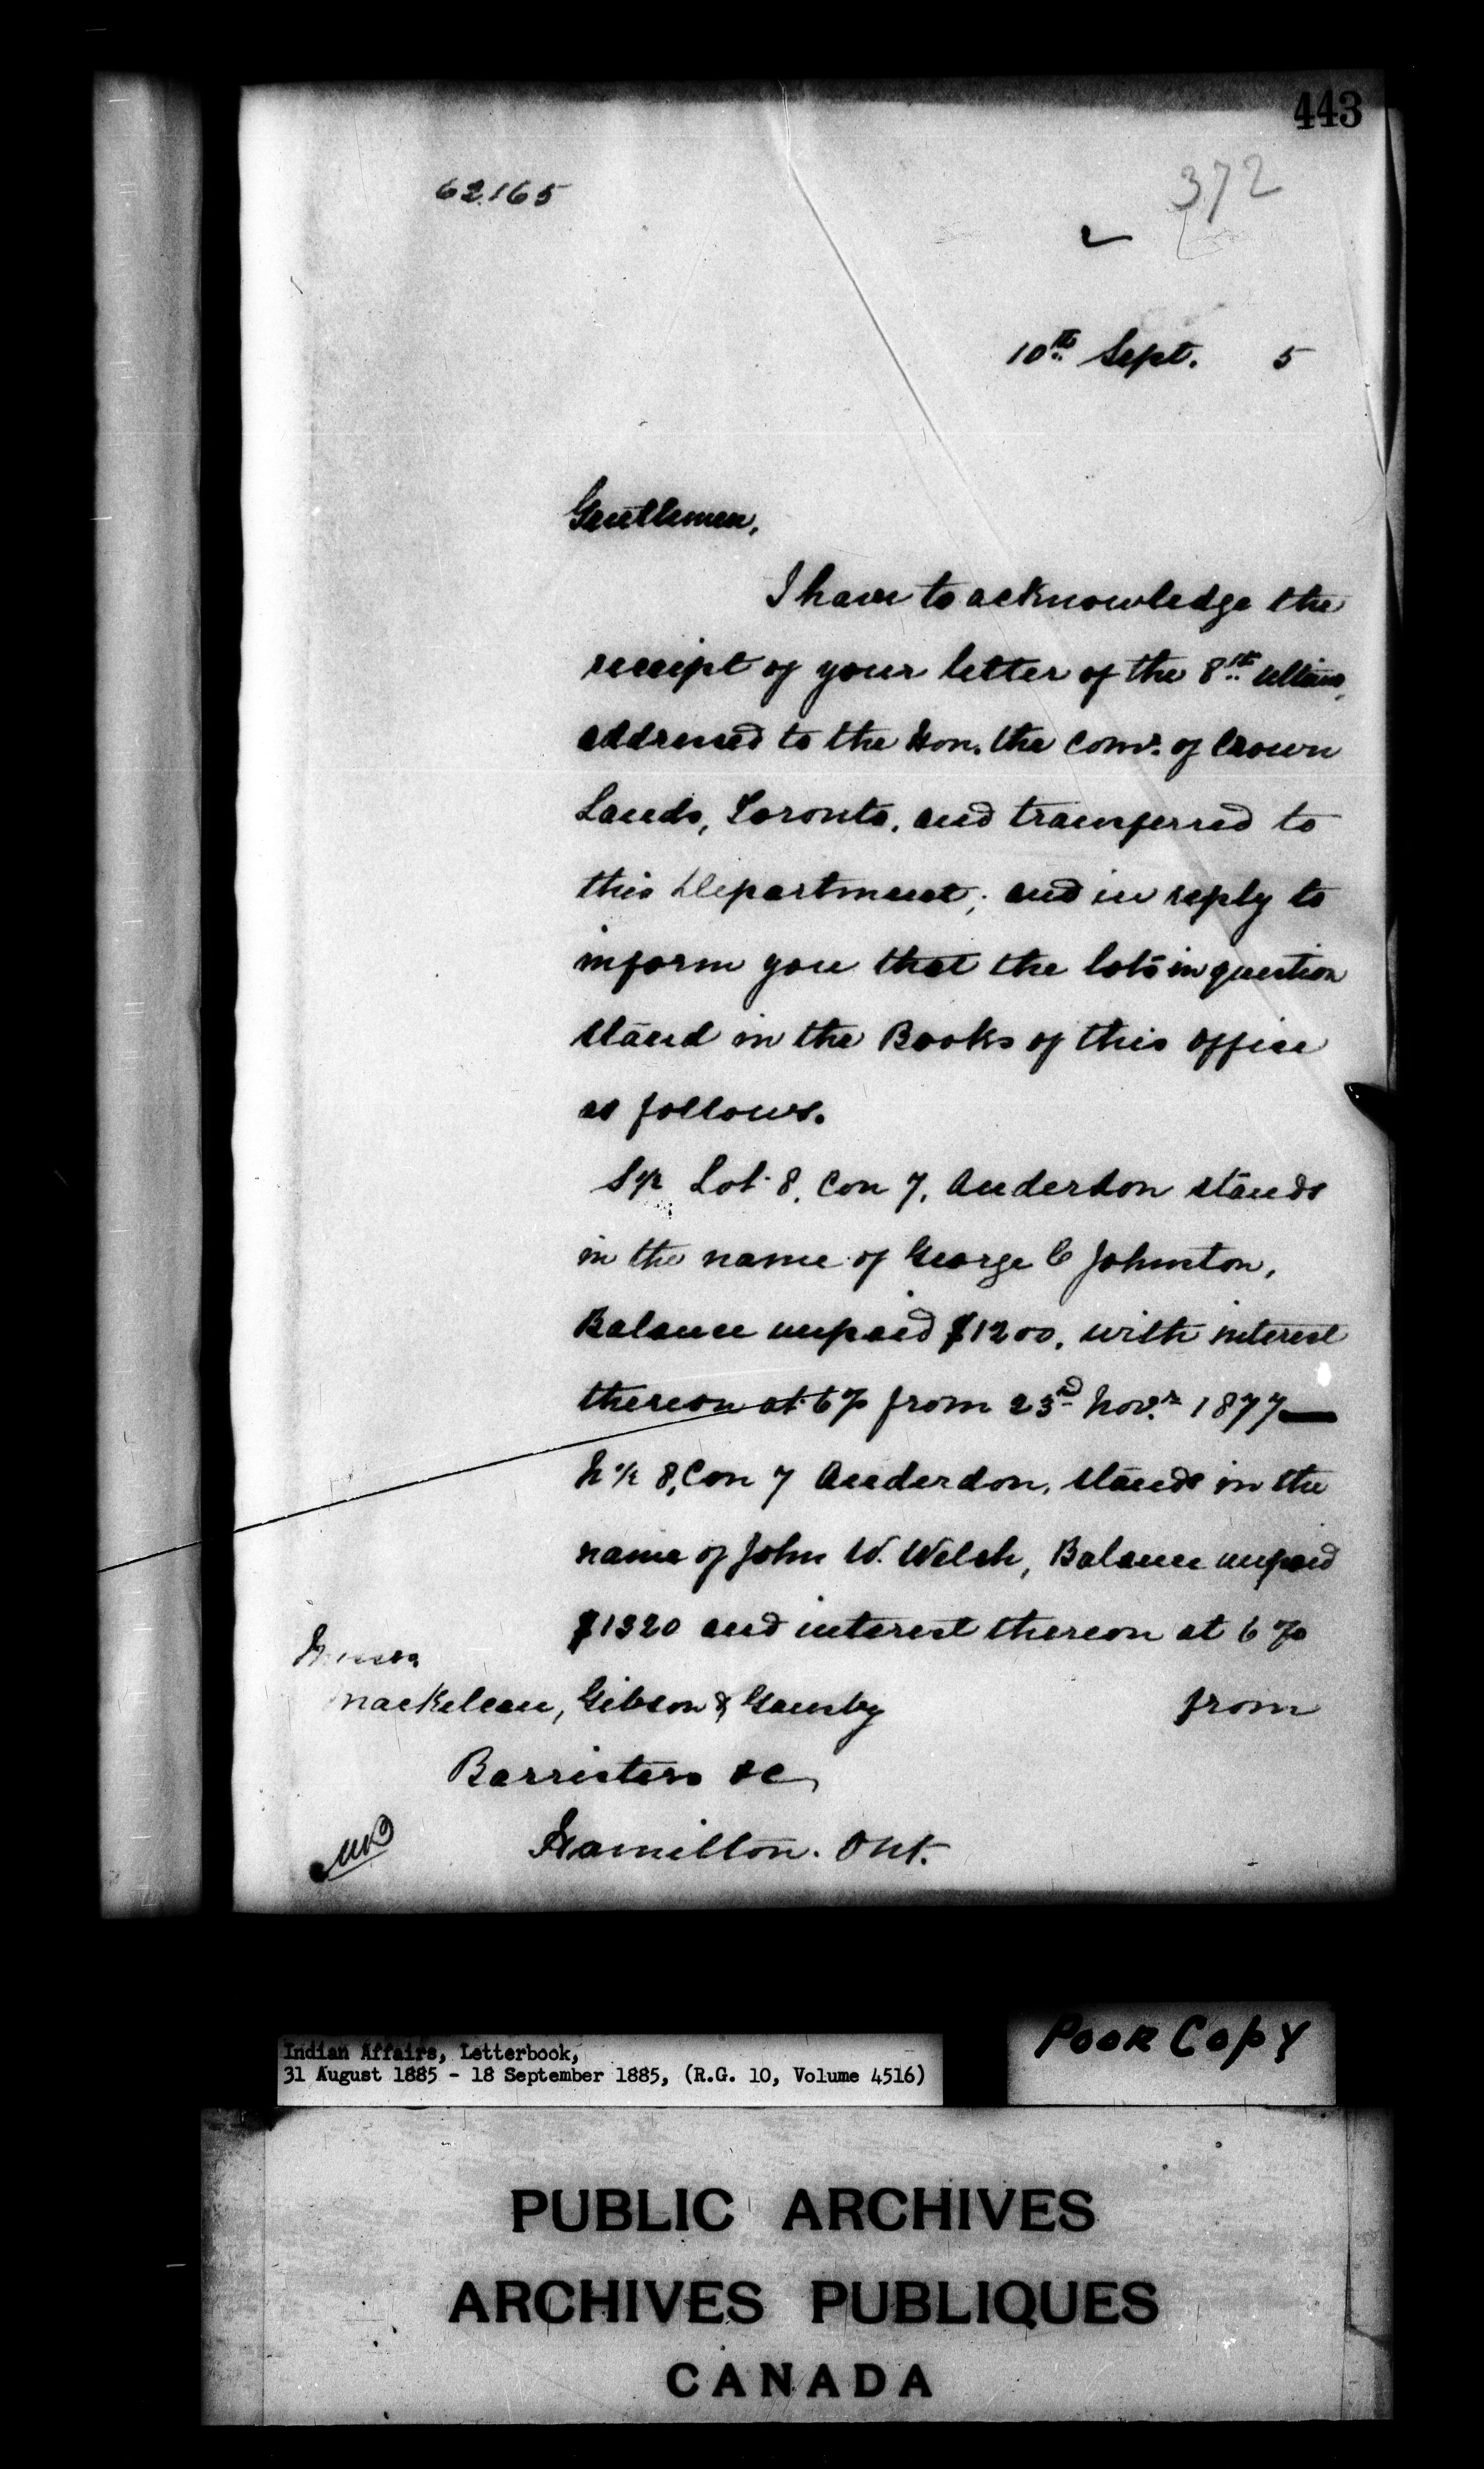 443
62165
372
10th Sept. 5
Gentlemen,
I have to acknowledge the
receipt of your letter of the 8th ultimo,
addressed to the Hon. the Comr. of Crown
Lands, Toronto, and transferred to
this Department; and in reply to
inform you that the lots in question
stand in the Books of this Office
as follows.
S½ Lot 8, Con 7, Anderdon stands
in the name of George C Johnston,
Balance unpaid $1200, with interest
thereon at 6% from 23rd Novr. 1877—
N½ 8, Con 7 Anderdon, stands in the
name of John W. Welsh, Balance unpaid
$1320 and interest thereon at 6%
from
Messrs
Mackelcan, Gibson & Gausby
Barristers &c,
Hamilton. Ont.
Poor Copy
Indian Affairs, Letterbook,
31 August 1885 - 18 September 1885, (R.G. 10, Volume 4516)
PUBLIC ARCHIVES
ARCHIVES PUBLIQUES
CANADA